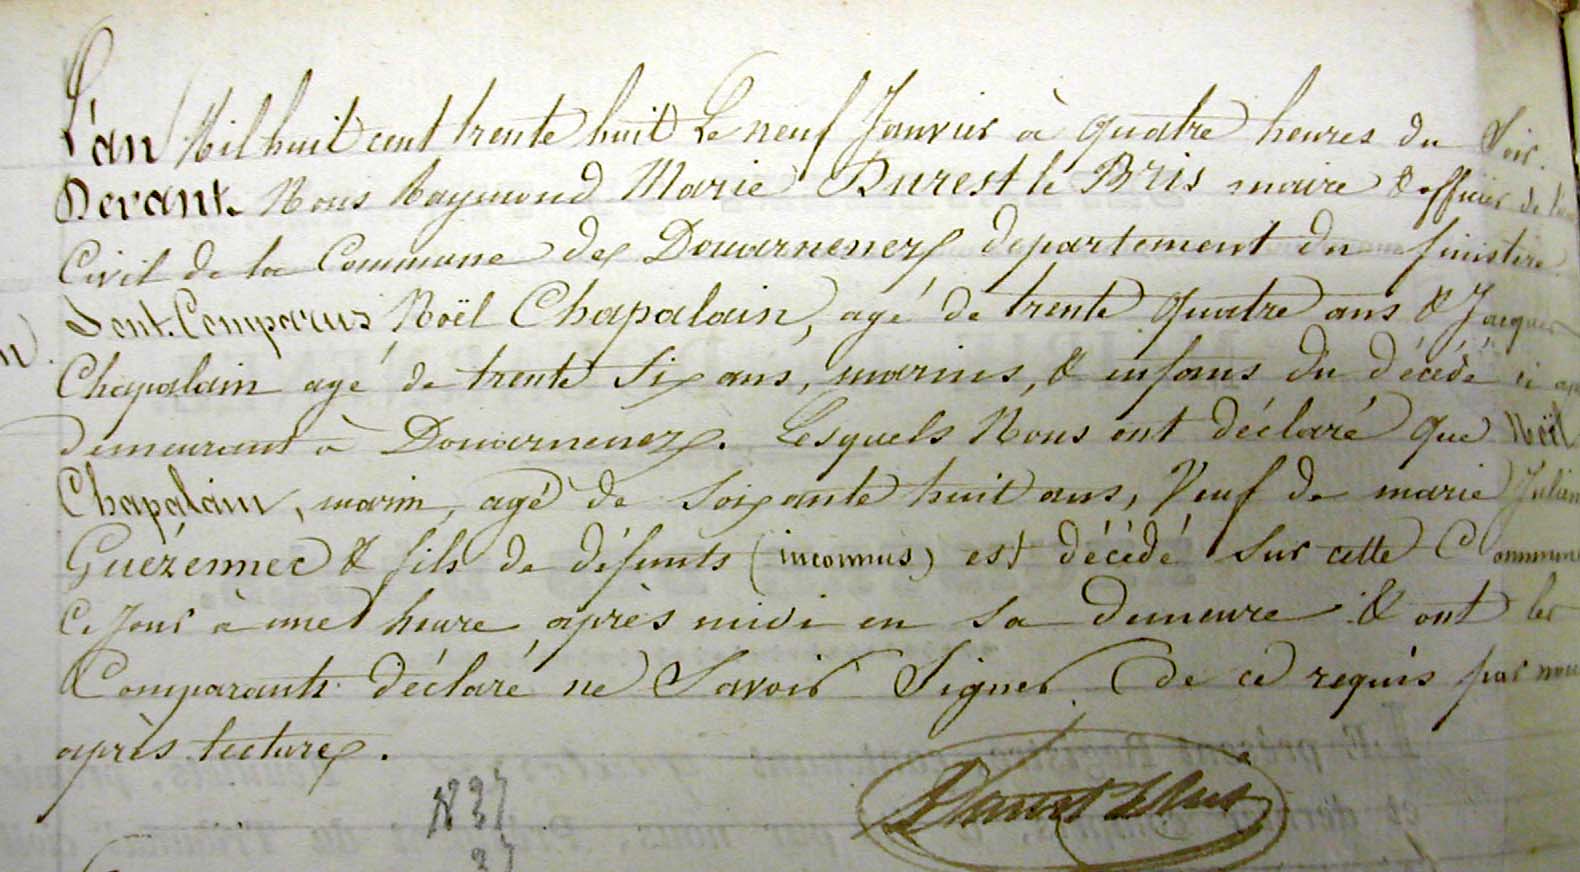 L'an Mil huit cent trente huit Le neuf Janvier à quatre heures du Soir.
Devant Nous Raymond Marie Durest le Bris maire & officier de
Civil de la Commune de Douarnenez departement du finistere
Sont Comparus Noël Chapalain, agé de trente quatre ans & Jacques
Chapalain agé de trente Six ans, marins, & enfans du décédé ci
demeurant à Douarnenez. Lesquels Nous ont déclaré que Noël
Chapalain, marin, agé de Soixante huit ans, Veuf de marie
Guézennec & fils de défunts (inconnus) est décédé Sur cette Commune
Ce Jour à une heure après midi en Sa demeure & ont les
Comparants déclaré ne Savoir Signer de ce requis par nous
après lecture.